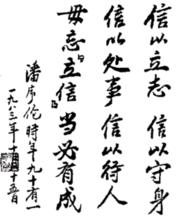 信以立志　信以守身
信以处事　信以待人
毋忘立信　当必有成
潘序伦时年九十有一
一九八三年十月十五日